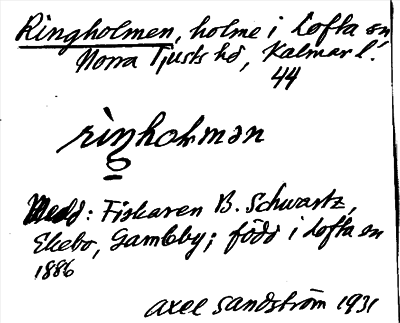 Ringholmen, holme i Lofta sn
Norra Tjusts hd, Kalmar l.
44
rìŋholmən
Medd: Fiskaren B. Schwartz,
Ekebo, Gamleby; född i Lofta sn
1886
Axel Sandström 1931